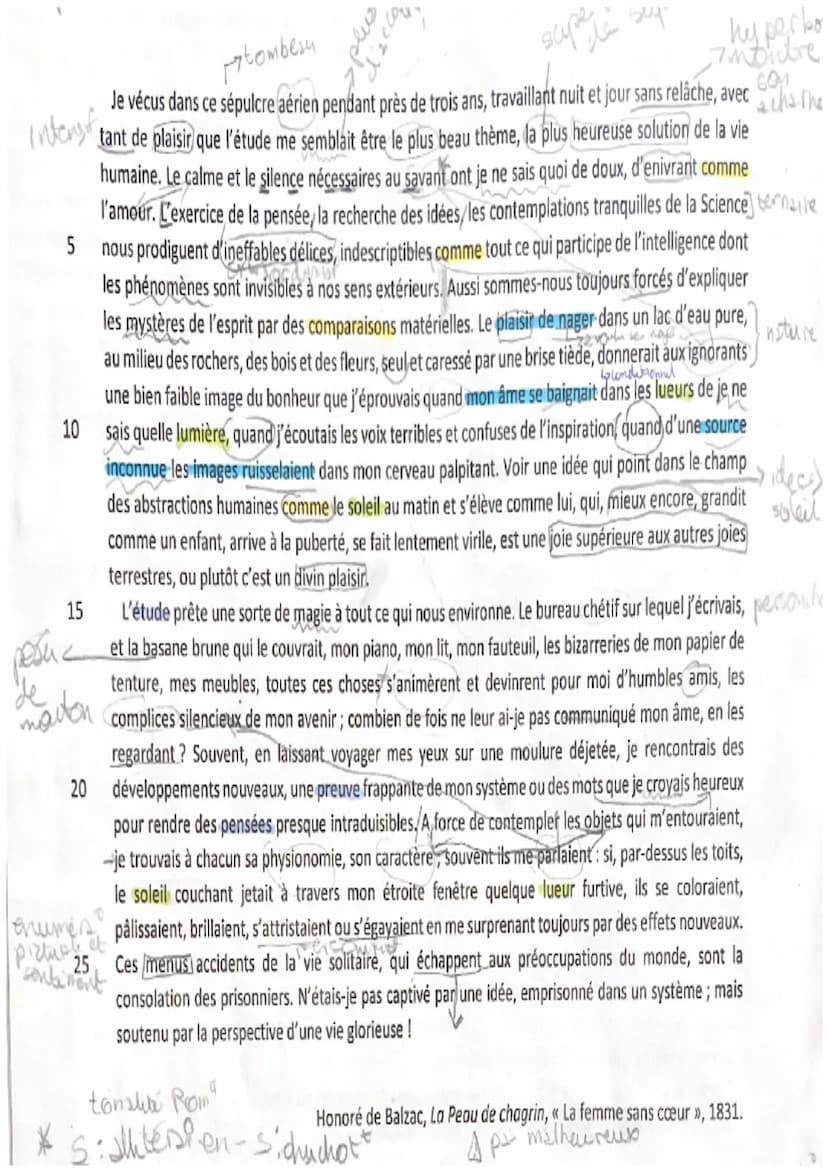 hyperbo
montre
son
acharne
→tombeau
Intensif
Je vécus dans ce sépulcre aérien pendant près de trois ans, travaillant nuit et jour sans relâche, avec
tant de plaisir que l'étude me semblait être le plus beau thème, la plus heureuse solution de la vie
humaine. Le calme et le silence nécessaires au savant ont je ne sais quoi de doux, d'enivrant comme
l'amour. L'exercice de la pensée, la recherche des idées, les contemplations tranquilles de la Science ternaire
5 nous prodiguent d'ineffables délices, indescriptibles comme tout ce qui participe de l'intelligence dont
les phénomènes sont invisibles à nos sens extérieurs. Aussi sommes-nous toujours forcés d'expliquer
les mystères de l'esprit par des comparaisons matérielles. Le plaisir de nager dans un lac d'eau pure,
nature
au milieu des rochers, des bois et des fleurs, seul et caressé par une brise tiède, donnerait aux ignorants
une bien faible image du bonheur que j'éprouvais quand mon âme se baignait dans les lueurs de je ne
10 sais quelle lumière, quand j'écoutais les voix terribles et confuses de l'inspiration, quand d'une source
inconnue les images ruisselaient dans mon cerveau palpitant. Voir une idée qui point dans le champ
idées
des abstractions humaines comme le soleil au matin et s'élève comme lui, qui, mieux encore, grandit
soleil
comme un enfant, arrive à la puberté, se fait lentement virile, est une joie supérieure aux autres joies
terrestres, ou plutôt c'est un divin plaisir.
15 L'étude prête une sorte de magie à tout ce qui nous environne. Le bureau chétif sur lequel j'écrivais,
et la basane brune qui le couvrait, mon piano, mon lit, mon fauteuil, les bizarreries de mon papier de
peau
de
mouton
tenture, mes meubles, toutes ces choses s'animèrent et devinrent pour moi d'humbles amis, les
complices silencieux de mon avenir ; combien de fois ne leur ai-je pas communiqué mon âme, en les
regardant ? Souvent, en laissant voyager mes yeux sur une moulure déjetée, je rencontrais des
20 développements nouveaux, une preuve frappante de mon système ou des mots que je croyais heureux
pour rendre des pensées presque intraduisibles. A force de contempler les objets qui m'entouraient,
je trouvais à chacun sa physionomie, son caractère ; souvent ils me parlaient : si, par-dessus les toits,
le soleil couchant jetait à travers mon étroite fenêtre quelque lueur furtive, ils se coloraient,
pâlissaient, brillaient, s'attristaient ou s'égayaient en me surprenant toujours par des effets nouveaux.
25 Ces menus accidents de la vie solitaire, qui échappent aux préoccupations du monde, sont la
consolation des prisonniers. N'étais-je pas captivé par une idée, emprisonné dans un système ; mais
soutenu par la perspective d'une vie glorieuse !
tonalité Rom
Honoré de Balzac, La Peau de chagrin, « La femme sans cœur », 1831.
pas malheureux